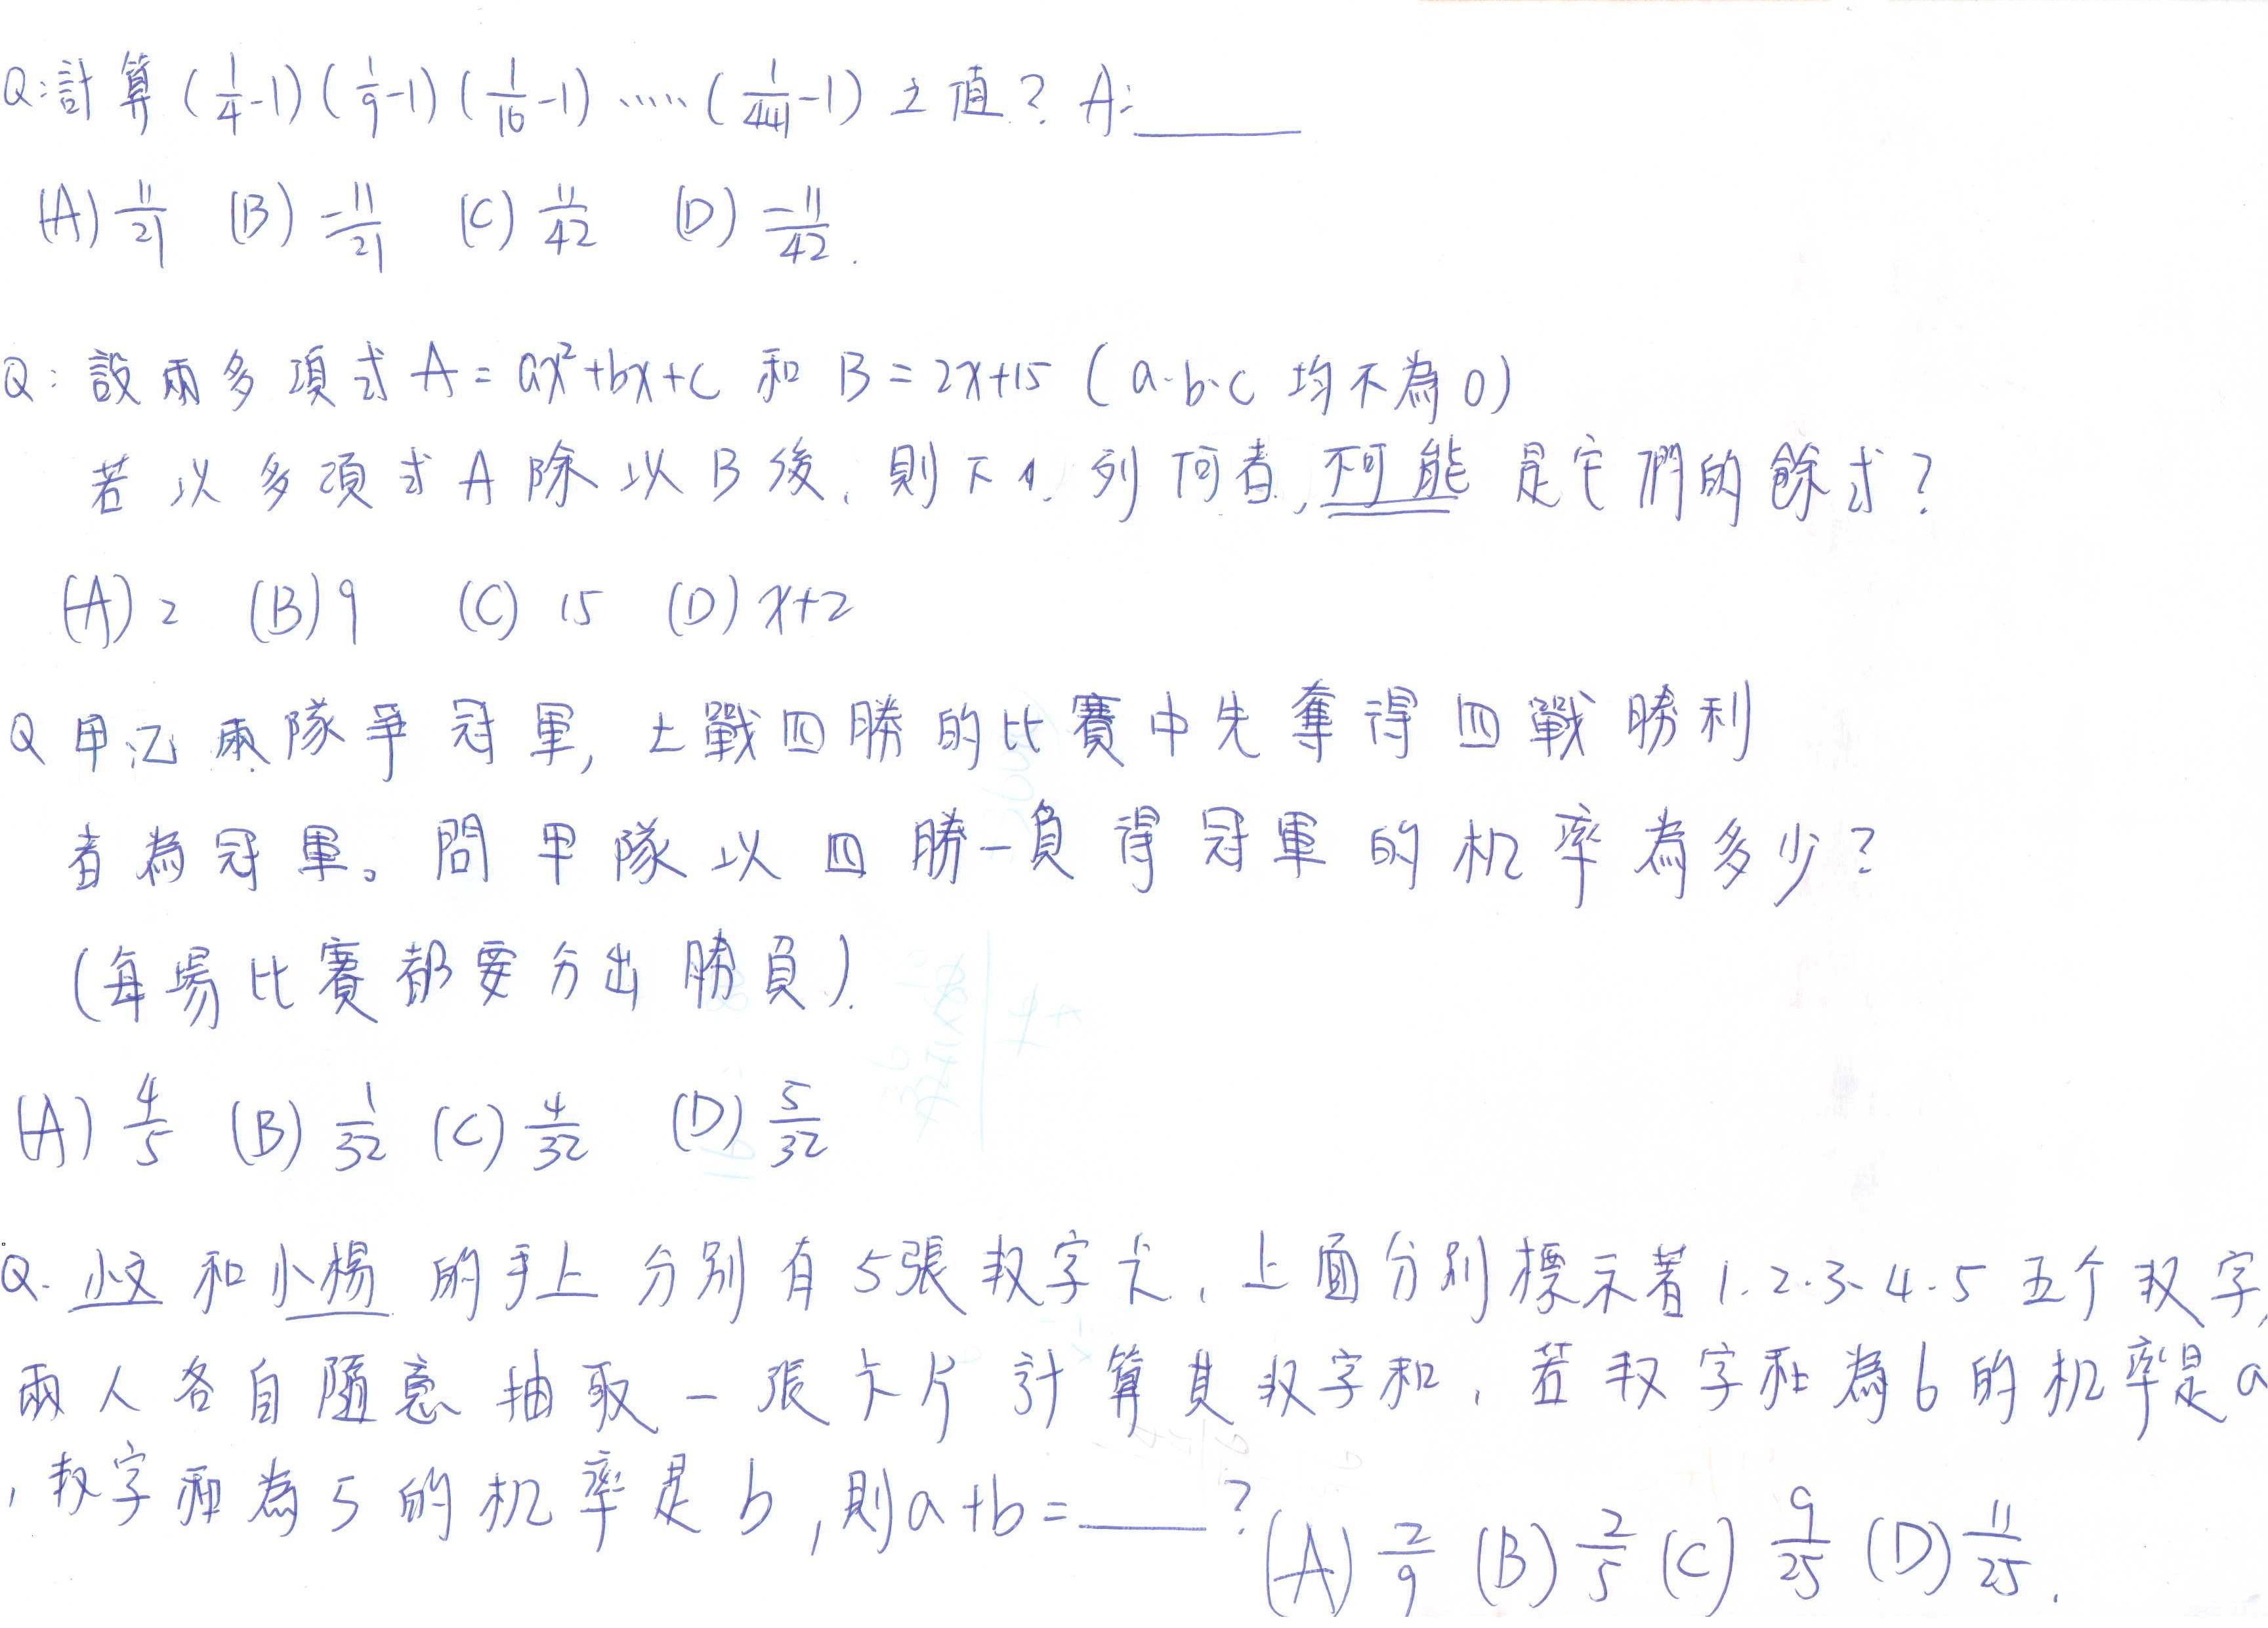 Q:計算 (1/4-1)(1/9-1)(1/16-1)……(1/441-1) 之值? A:______
(A) 11/21 (B) -11/21 (C) 11/42 (D) -11/42.
Q:設兩多項式 A=ax²+bx+c 和 B=2x+15 (a.b.c 均不為0)
若以多項式A除以B後、則下列何者,不可能是它們的餘式?
(A) 2 (B) 9 (C) 15 (D) x+2
Q 甲.乙兩隊爭冠軍,七戰四勝的比賽中先奪得四戰勝利
者為冠軍。問甲隊以四勝一負得冠軍的机率為多少?
(每場比賽都要分出勝負).
(A) 4/5 (B) 1/32 (C) 4/32 (D) 5/32
Q. 小文和小楊的手上分別有5張数字卡、上面分別標示著1.2.3.4.5五个数字,
兩人各自隨意抽取一張卡片計算其数字和,若数字和為6的机率是a
,数字和為5的机率是b,則a+b=____?(A) 2/9 (B) 2/5 (C) 9/25 (D) 11/25.